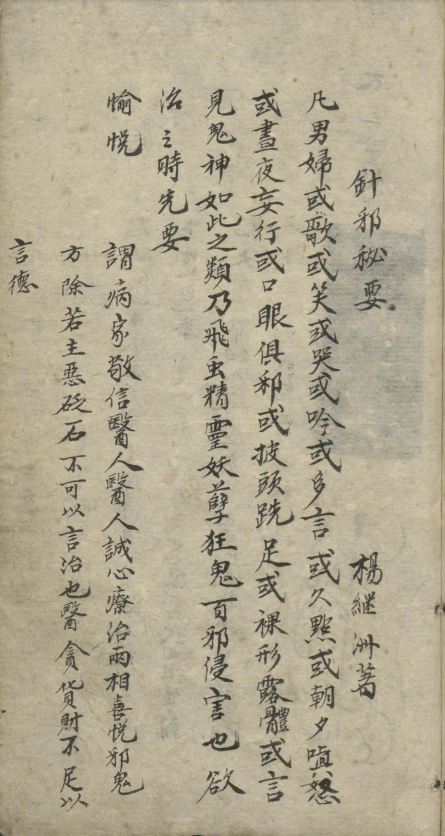 針邪秘要 楊継洲著
凡男婦或歌或笑或哭或吟或多言或久默或朝夕嗔怒
或晝夜妄行或口眼俱邪或披頭跣足或裸形露體或言
見鬼神如此之類乃飛虫精靈妖孽狂鬼百邪侵害也欲
治之時先要
愉悅
謂病家敬信醫人醫人誠心療治兩相喜悅邪鬼
方除若主惡砭石不可以言治也醫貪貨財不足以
言德